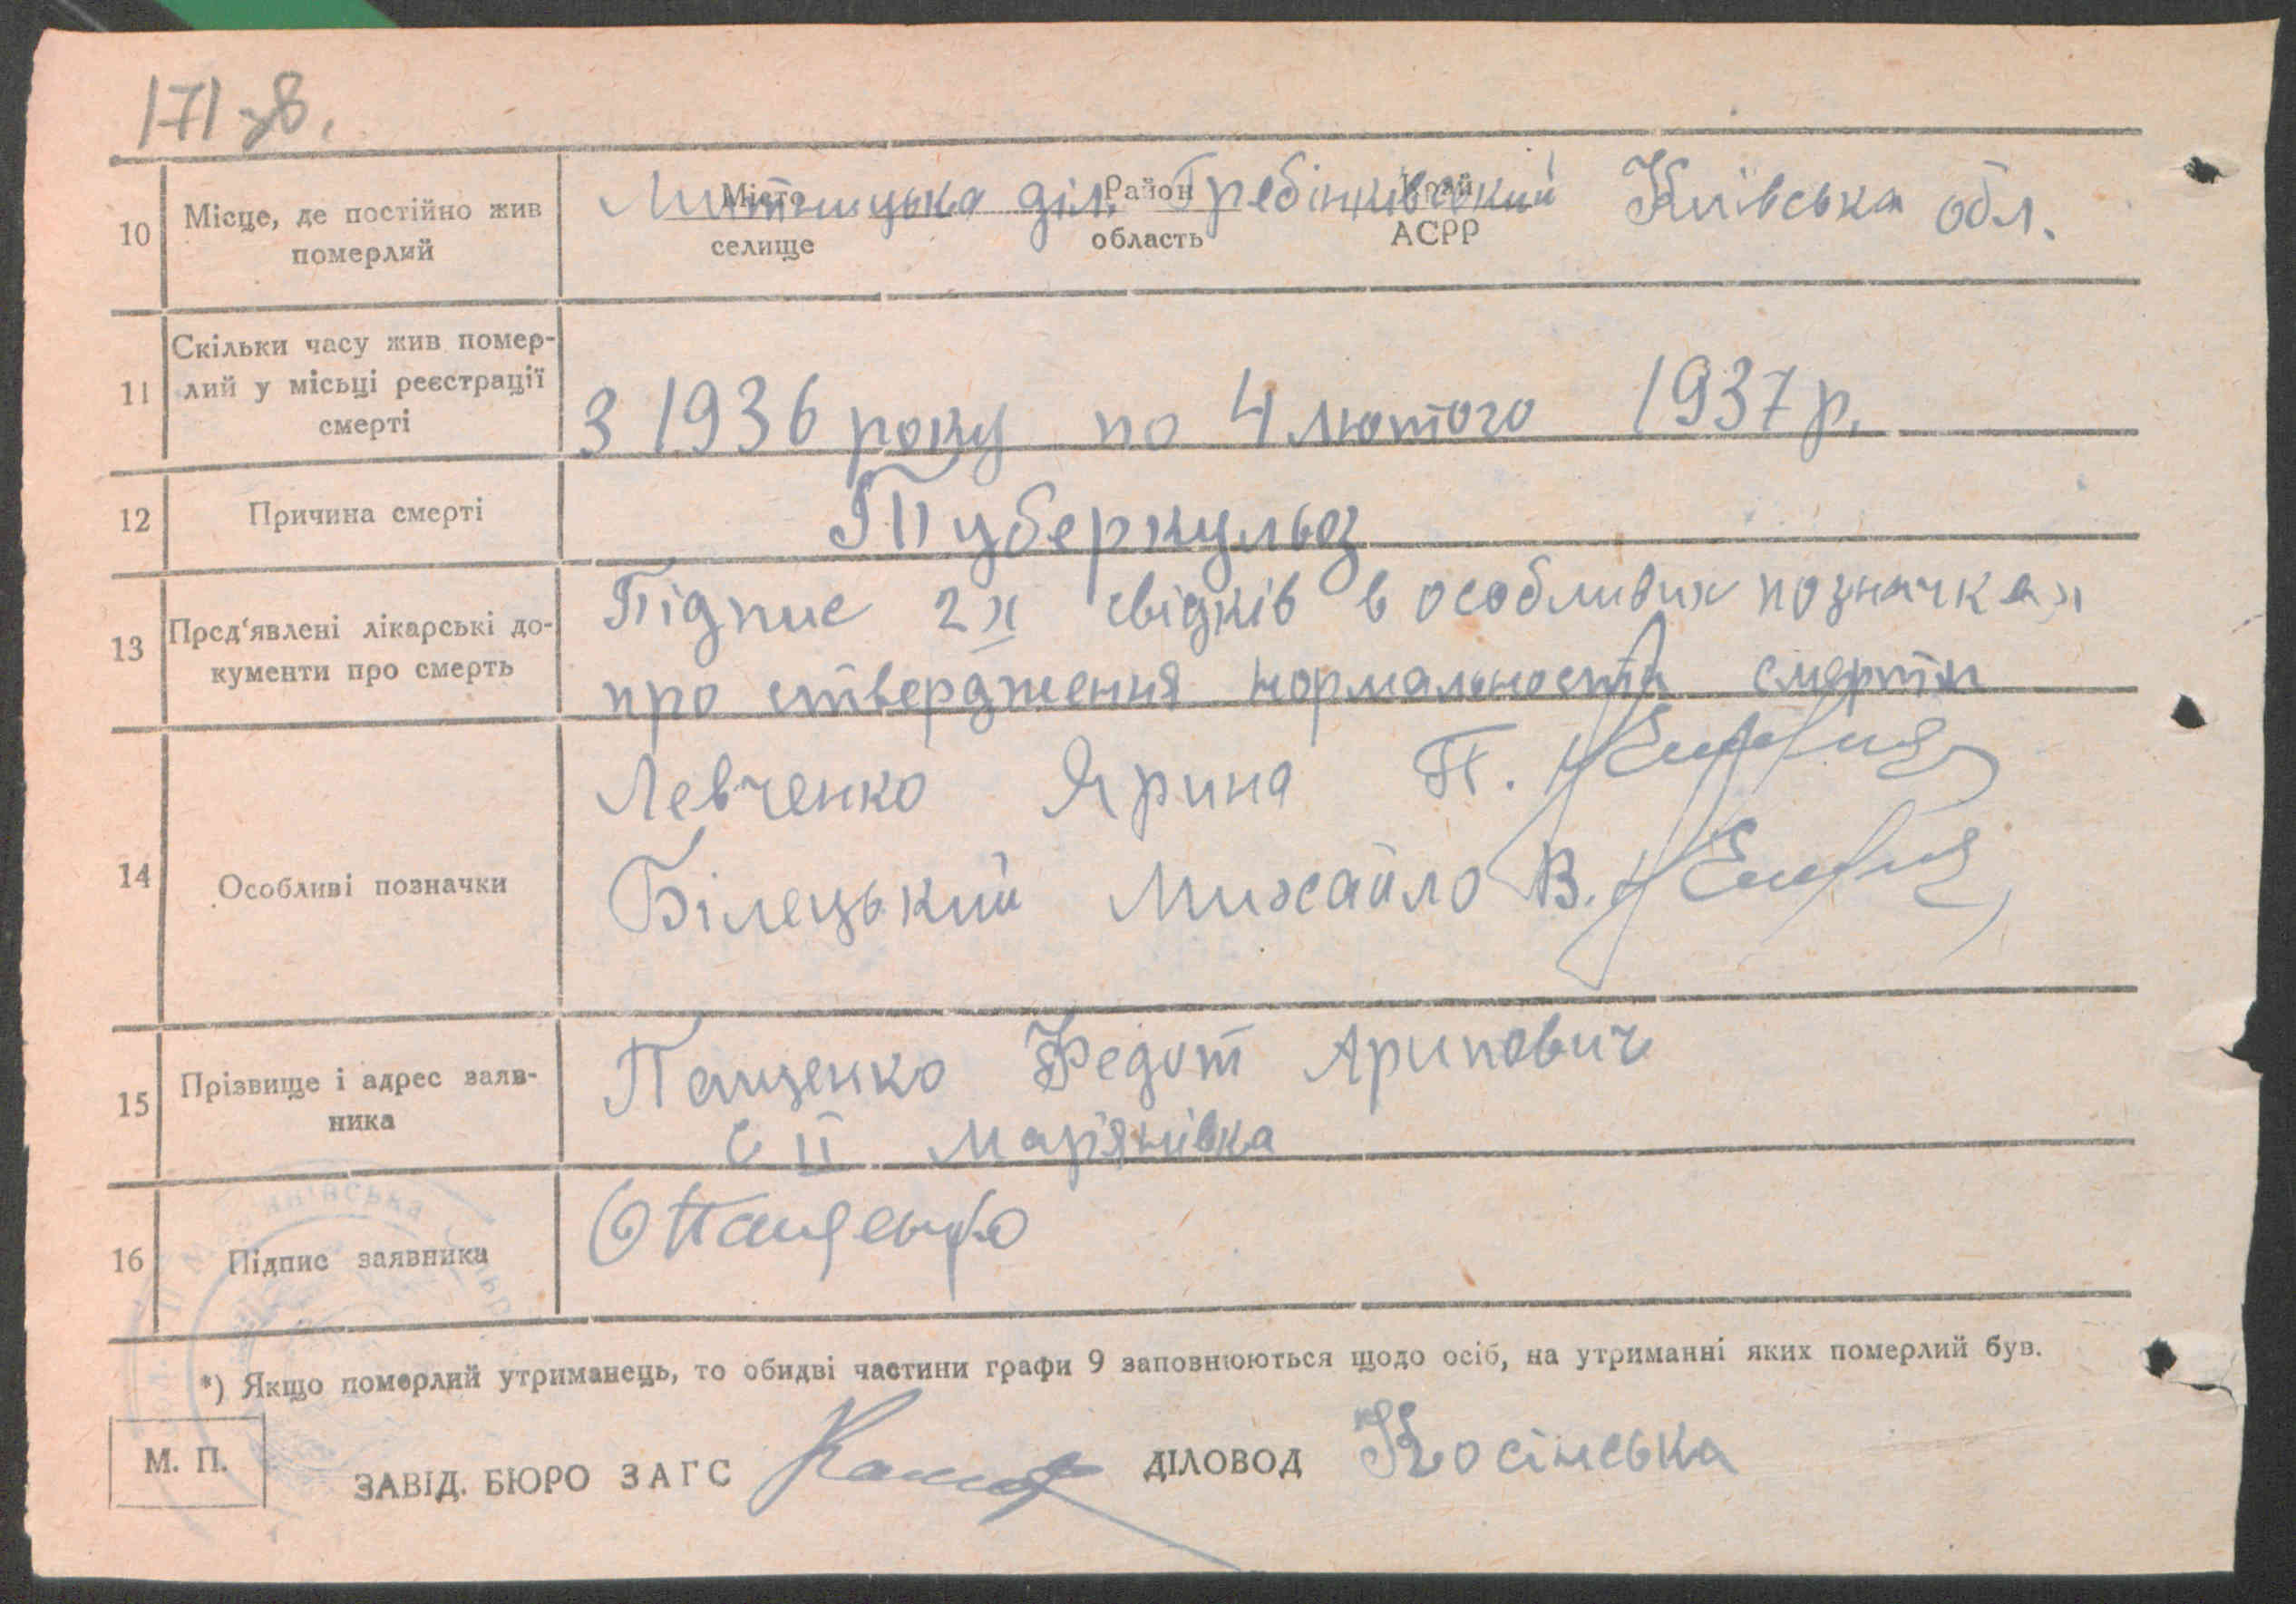 171 зв.
10 Місце, де постійно жив померлий
Місто селище Район область Край АСРР
Митницька діл. Гребінківський Київська обл.
11 Скільки часу жив помер-
лий у місьці реєстрації
смерті
З 1936 року по 4 лютого 1937 р.
12 Причина смерті
Туберкульоз
13 Пред'явлені лікарські до-
кументи про смерть
Підпис 2х свідків в особливих позначках
про ствердження нормальности смерти
14 Особливі позначки
Левченко Ярина П.
Білецький Михайло В.
15 Прізвище і адрес заяв-
ника
Пащенко Федот Арипович
С II Мар'янівка
16 Підпис заявника
Пащенко
*) Якщо померлий утриманець, то обидві частини графи 9 заповнюються щодо осіб, на утриманні яких померлий був.
М. П.
ЗАВІД. БЮРО ЗАГС
ДІЛОВОД Косінська